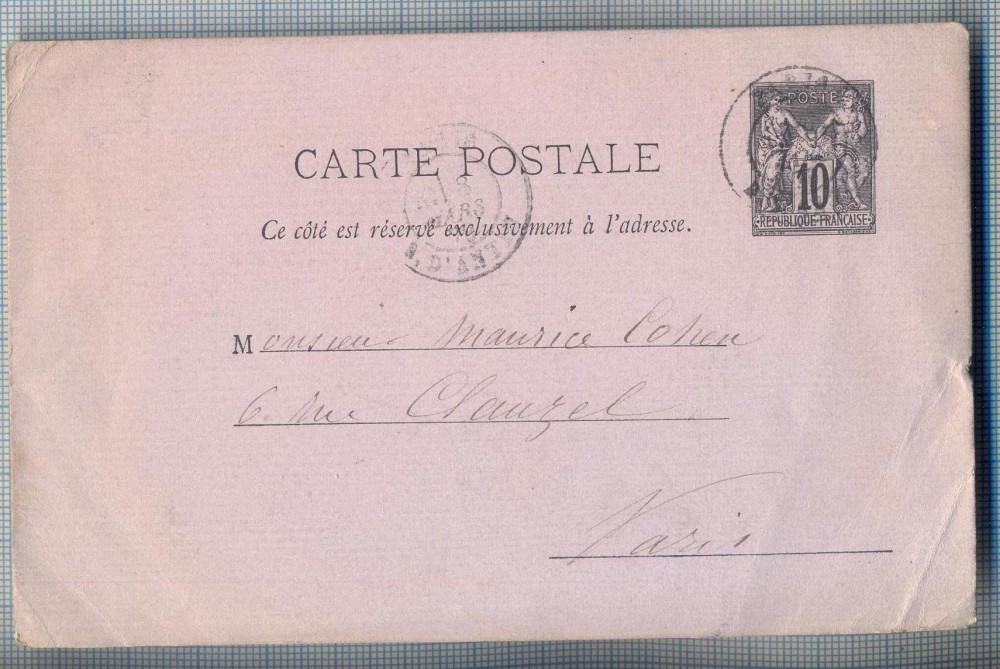 POSTE
10
REPUBLIQUE FRANCAISE
CARTE POSTALE
8
MARS
R. D'ANTIN
Ce côté est réservé exclusivement à l'adresse.
Monsieur Maurice Cohen
6. rue Clauzel
Paris